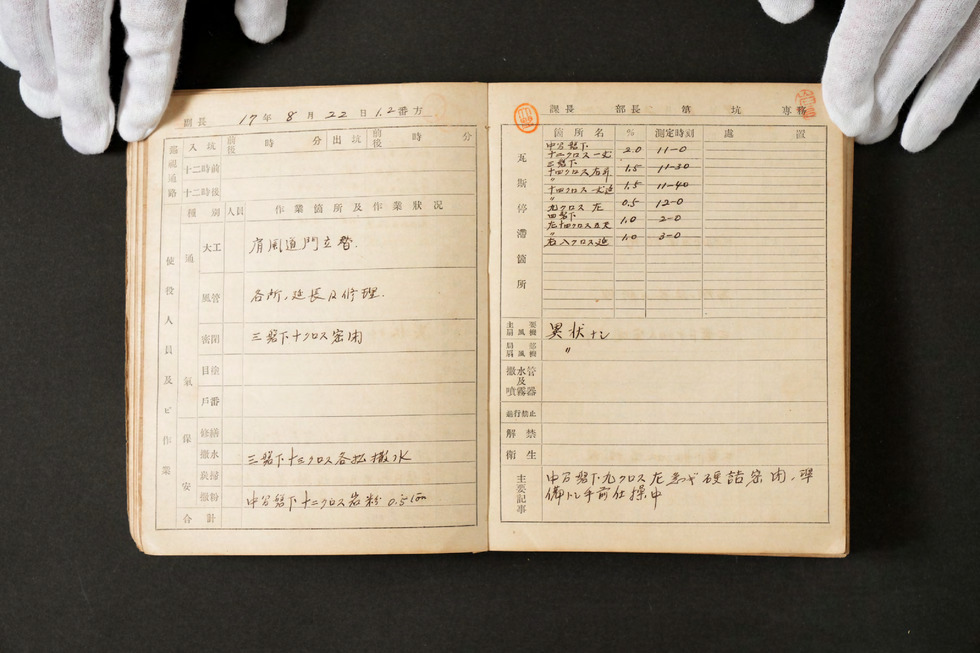 副長 17年 8月 22日 1.2番方
巡視通路 入坑 前後 時 分 出坑 前後 時 分
十二時前
十二時後
使役人員及ビ作業
種別 人員 作業箇所及作業狀況
通氣
大工 肩風道門立替.
風管 各所、延長及修理.
密閉 三盤下十クロス密閉
目塗
戶番
保安
修繕
撒水 三盤下十三クロス各払撒水
撒粉 中部盤下十二クロス岩粉 0.5
合計
課長 部長 第 坑 專務
瓦斯停滯箇所
箇所名 % 測定時刻 處置
中盤下
十二クロス一丈 2.0 11-0
三盤下
十四クロス右昇 1.5 11-30
〃
十四クロス 1.5 11-40
〃
九クロス左 0.5 12-0
四盤下
左十四クロス 1.0 2-0
〃
右入クロス延 1.0 3-0
主要扇風機 異狀ナシ
局部扇風機 〃
撒水管及噴霧器
通行禁止
解禁
衛生
主要記事
中盤下九クロス左 硬詰密閉、準
備トシ手前仕操中